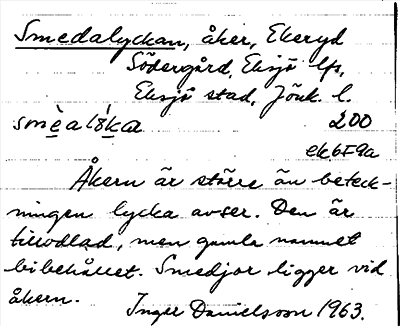 Smedalyckan, åker, Ekeryd
Södergård, Eksjö lfs,
Eksjö stad, Jönk. l.
200
ek6F9a
Åkern är större än beteck-
ningen lycka avser. Den är
tillodlad, men gamla namnet
bibehållet. Smedjor ligger vid
åkern.
Inger Danielsson 1963.